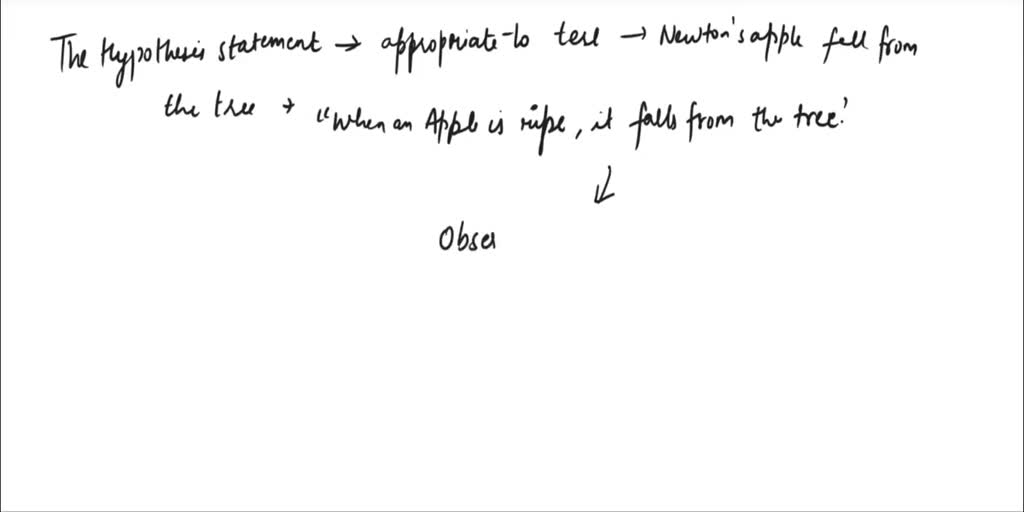 The Hypothesis statement → appropriate to test → Newton's apple fell from
the tree → "When an Apple is ripe, it falls from the tree."
↓
Obser